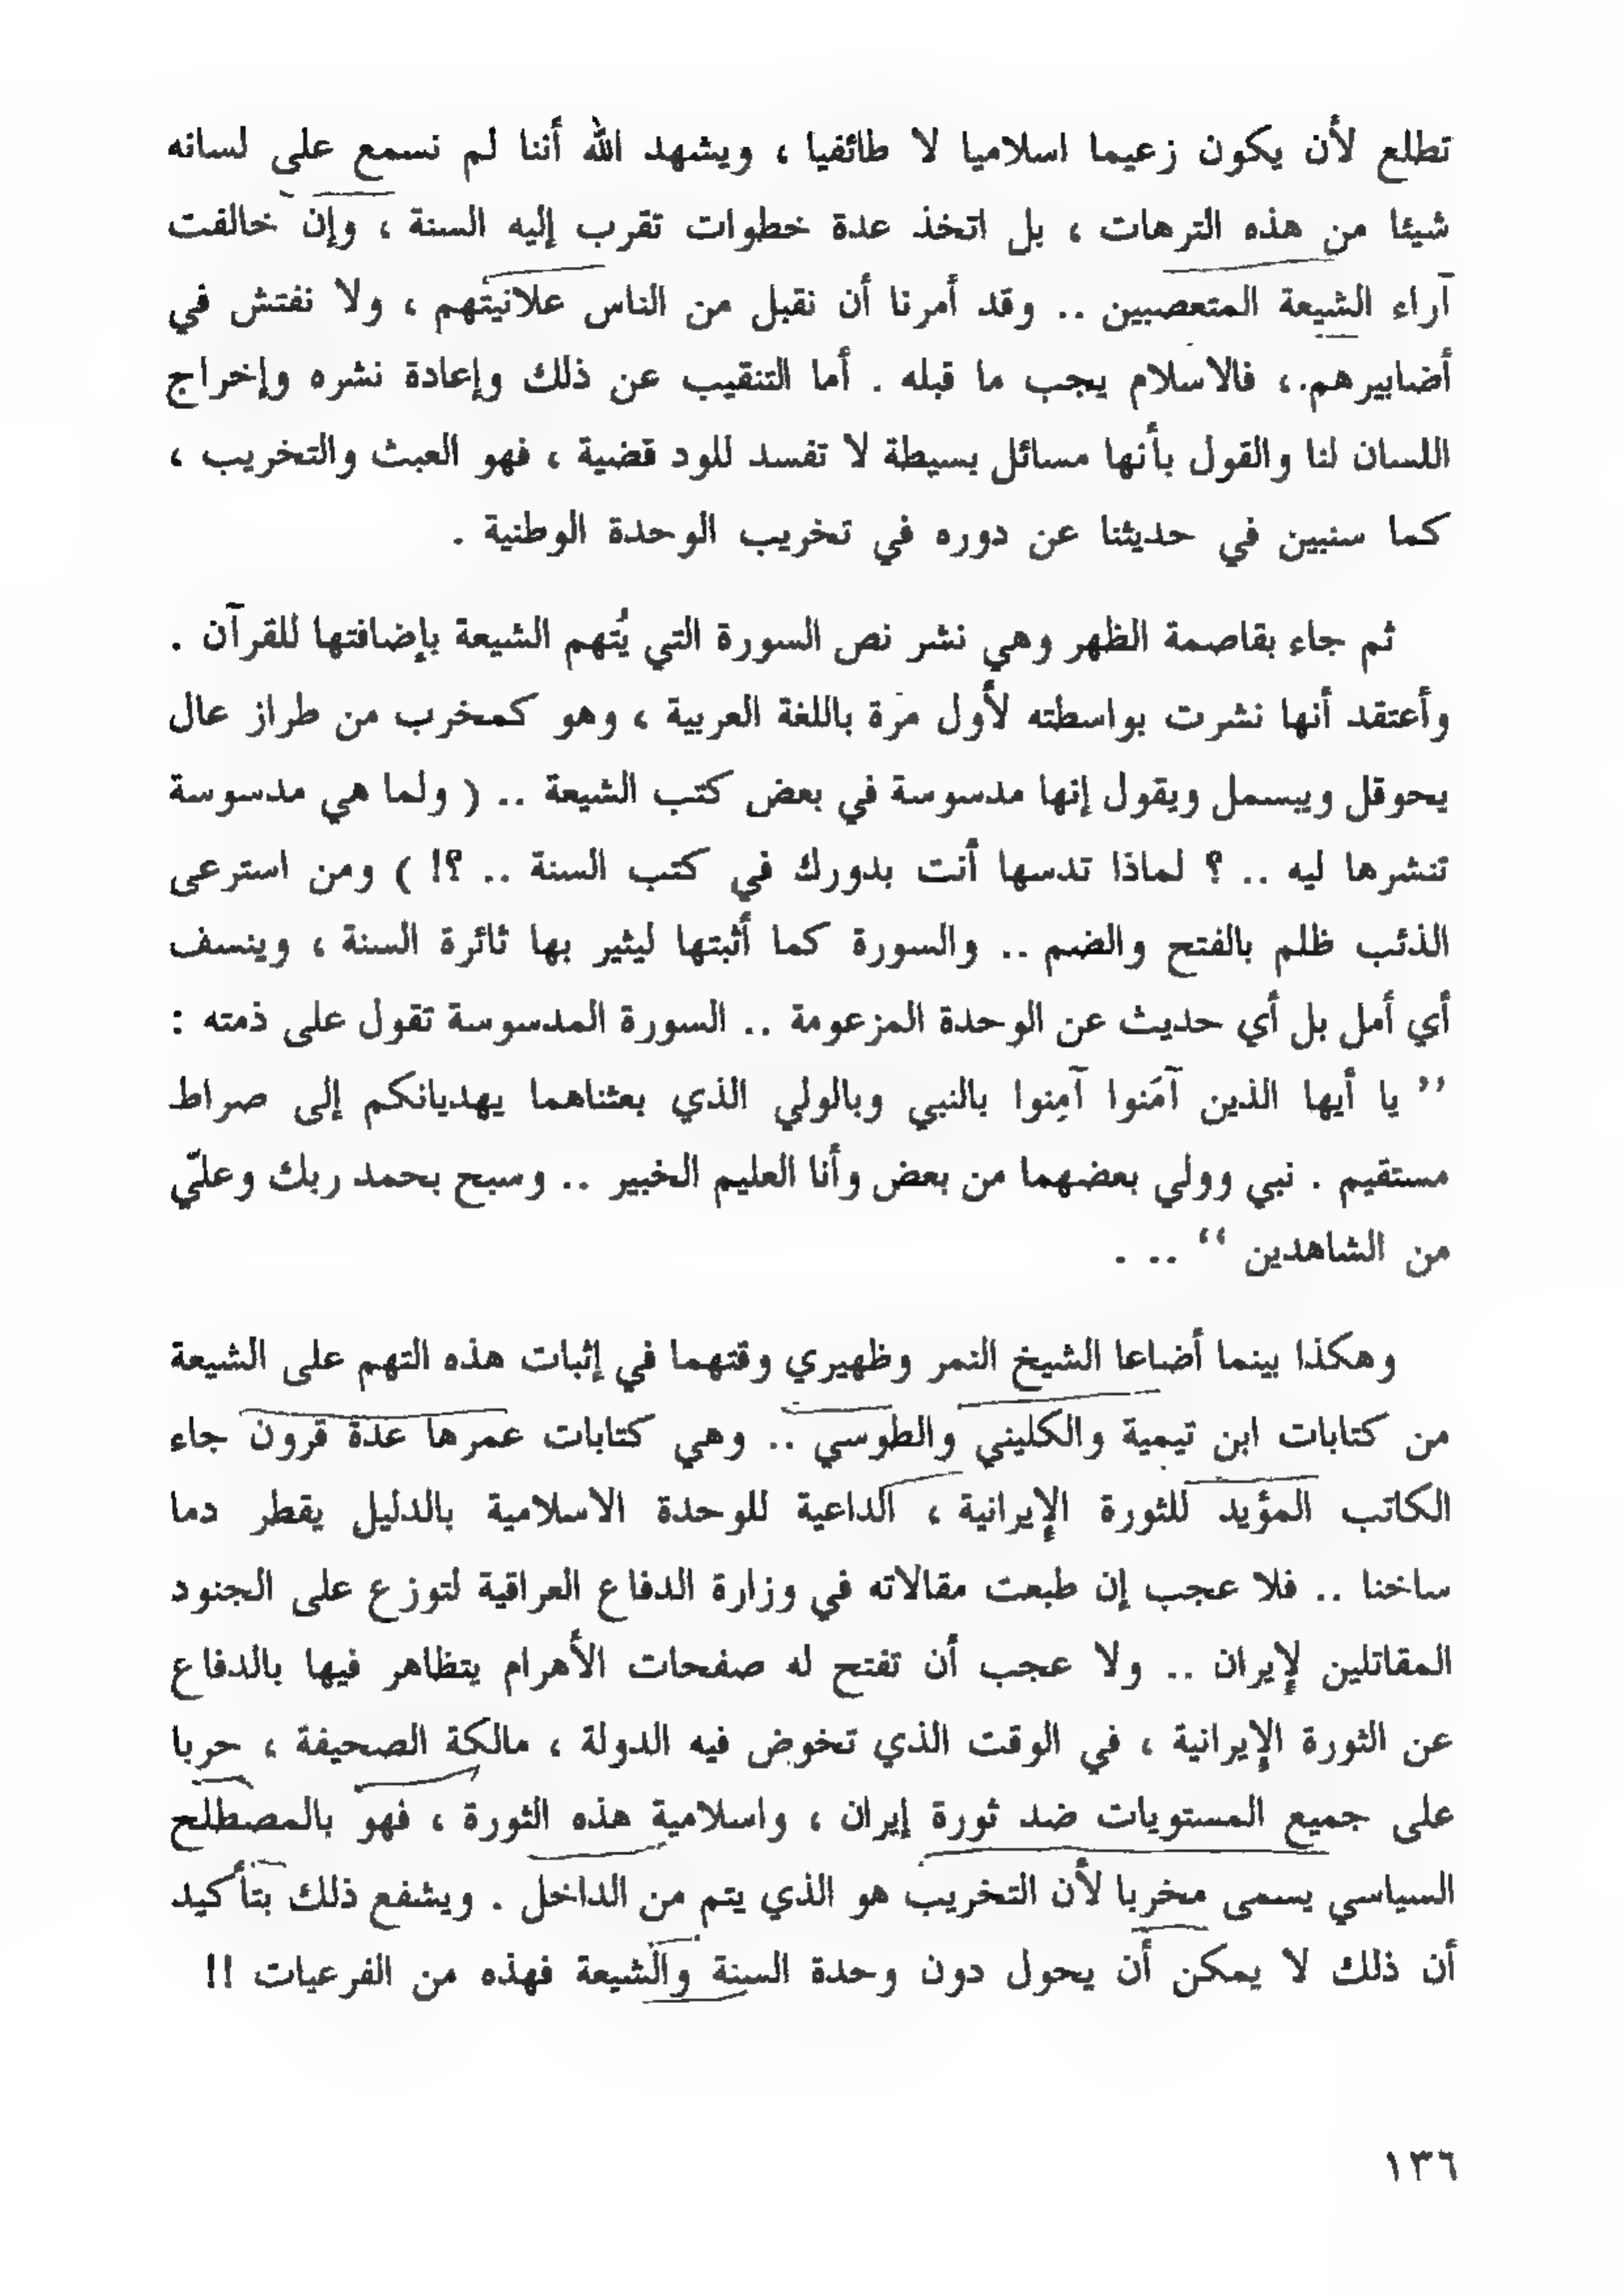 تطلع لأن يكون زعيما اسلاميا لا طائفيا ، ويشهد الله أننا لم نسمع على لسانه
شيئا من هذه الترهات ، بل اتخذ عدة خطوات تقرب إليه السنة ، وإن خالفت
آراء الشيعة المتعصبين .. وقد أمرنا أن نقبل من الناس علانيتهم ، ولا نفتش في
أضابيرهم ، فالاسلام يجب ما قبله . أما التنقيب عن ذلك وإعادة نشره وإخراج
اللسان لنا والقول بأنها مسائل بسيطة لا تفسد للود قضية ، فهو العبث والتخريب ،
كما سنبين في حديثنا عن دوره في تخريب الوحدة الوطنية .
ثم جاء بقاصمة الظهر وهي نشر نص السورة التي يُتهم الشيعة بإضافتها للقرآن .
وأعتقد أنها نشرت بواسطته لأول مرة باللغة العربية ، وهو كمخرب من طراز عال
يحوقل ويبسمل ويقول إنها مدسوسة في بعض كتب الشيعة .. ( ولما هي مدسوسة
تنشرها ليه .. ؟ لماذا تدسها أنت بدورك في كتب السنة .. ؟! ) ومن استرعى
الذئب ظلم بالفتح والضم .. والسورة كما أثبتها ليثير بها ثائرة السنة ، وينسف
أي أمل بل أي حديث عن الوحدة المزعومة .. السورة المدسوسة تقول على ذمته :
” يا أيها الذين آمَنوا آمِنوا بالنبي وبالولي الذي بعثناهما يهديانكم إلى صراط
مستقيم . نبي وولي بعضهما من بعض وأنا العليم الخبير .. وسبح بحمد ربك وعليّ
من الشاهدين “ .. .
وهكذا بينما أضاعا الشيخ النمر وظهيري وقتهما في إثبات هذه التهم على الشيعة
من كتابات ابن تيمية والكليني والطوسي .. وهي كتابات عمرها عدة قرون جاء
الكاتب المؤيد للثورة الإيرانية ، الداعية للوحدة الاسلامية بالدليل يقطر دما
ساخنا .. فلا عجب إن طبعت مقالاته في وزارة الدفاع العراقية لتوزع على الجنود
المقاتلين لإيران .. ولا عجب أن تفتح له صفحات الأهرام يتظاهر فيها بالدفاع
عن الثورة الإيرانية ، في الوقت الذي تخوض فيه الدولة ، مالكة الصحيفة ، حربا
على جميع المستويات ضد ثورة إيران ، واسلامية هذه الثورة ، فهو بالمصطلح
السياسي يسمى مخربا لأن التخريب هو الذي يتم من الداخل . ويشفع ذلك بتأكيد
أن ذلك لا يمكن أن يحول دون وحدة السنة والشيعة فهذه من الفرعيات !!
١٣٦